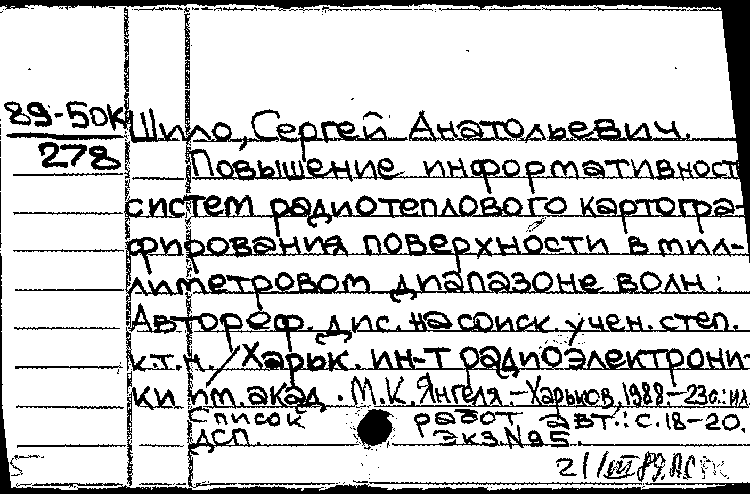 89-50К Шило, Сергей Анатольевич.
278 Повышение информативност
систем радиотеплового картогра-
фирования поверхности в мил-
лиметровом диапазоне волн:
Автореф. дис. на соиск. учен. степ.
к.т.н. / Харьк. ин-т радиоэлектрони-
ки им. акад. М.К. Янгеля.-Харьков, 1988.-23с.: ил
Список работ авт.: с.18-20.
ДСП. Экз.N95.
21/VII 89.